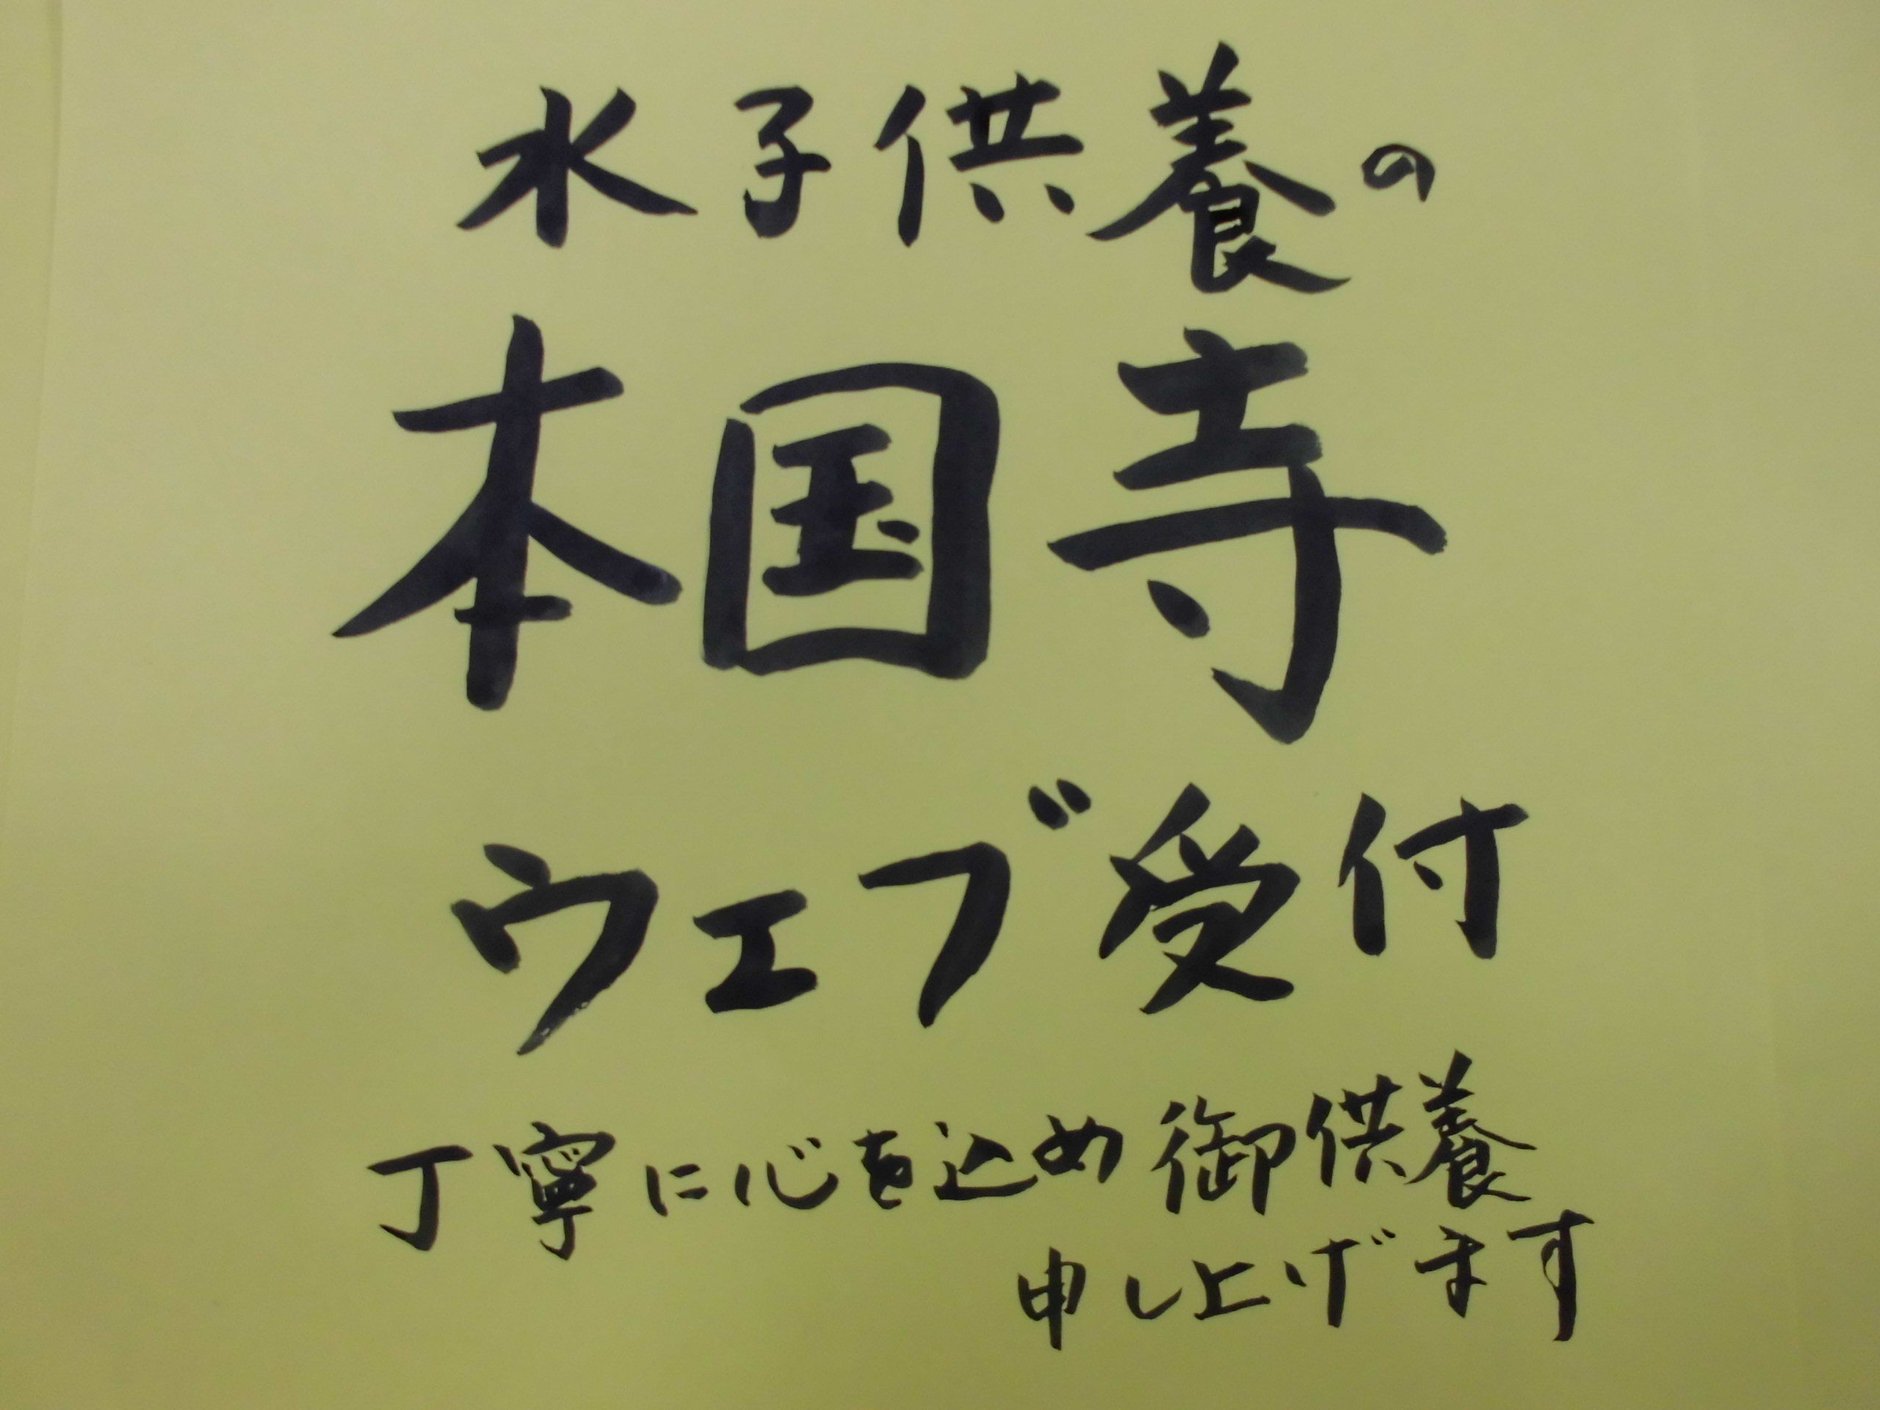 水子供養の
本国寺
ウェブ受付
丁寧に心を込め御供養
申し上げます